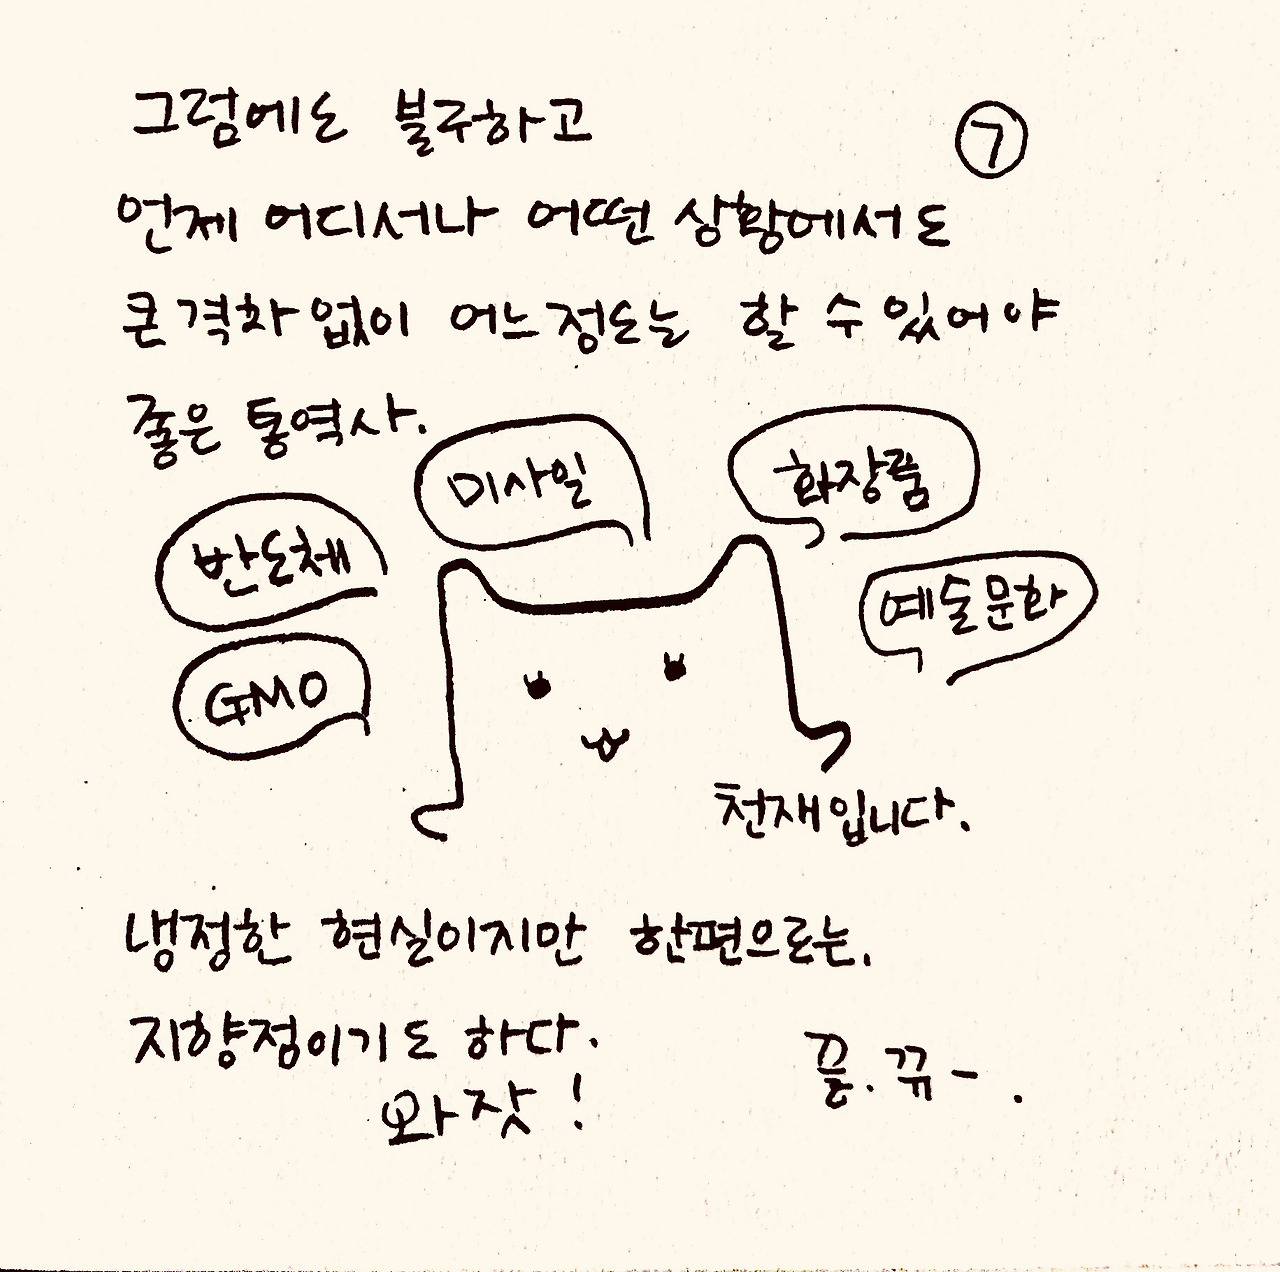 그럼에도 불구하고
⑦
언제 어디서나 어떤 상황에서도
큰 격차 없이 어느정도는 할 수 있어야
좋은 통역사.
미사일
화장품
반도체
예술문화
GMO
천재입니다.
냉정한 현실이지만 한편으로는.
지향점이기도 하다.
와잣!
끝. 뀨-.